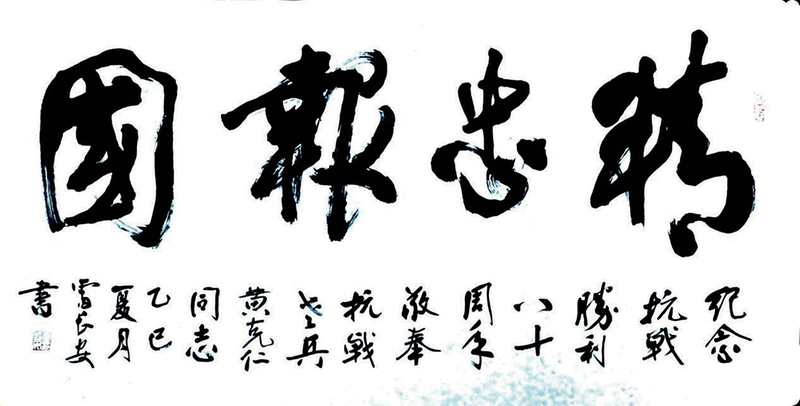 精忠報國
紀念
抗戰
勝利
八十
周年
敬奉
抗戰
老兵
黄克仁
同志
乙巳
夏月
雷长安
書